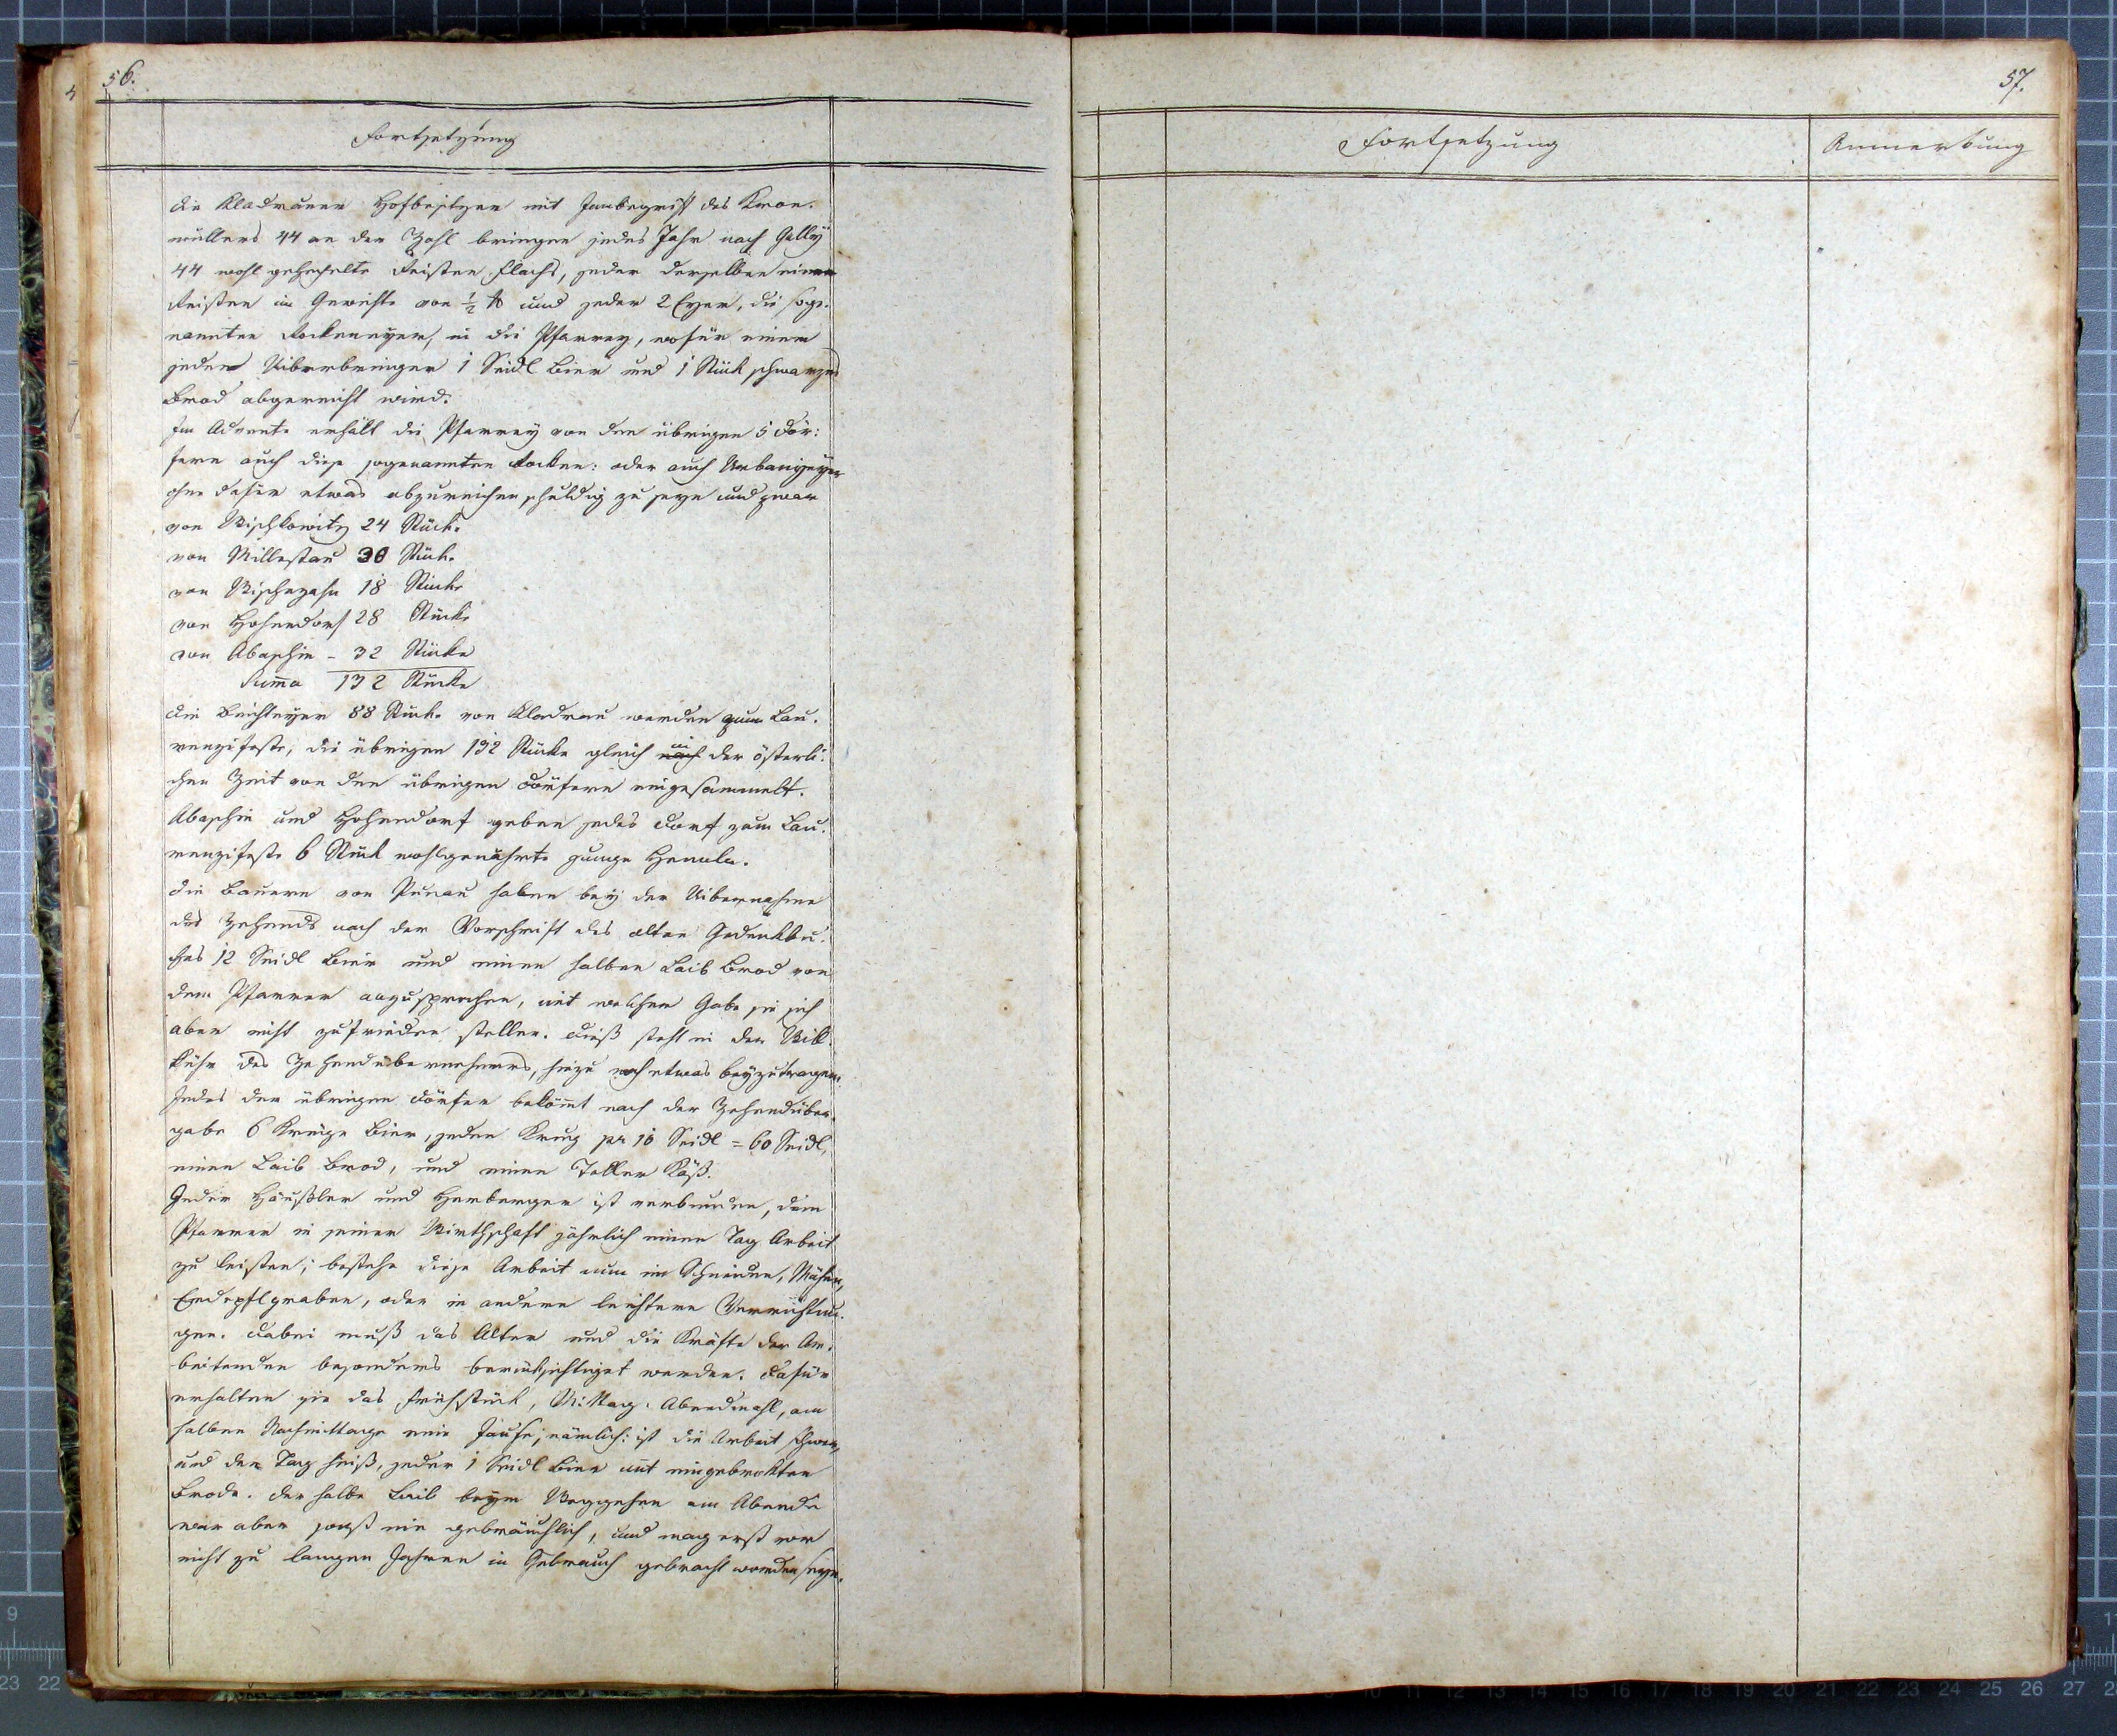 56.
Fortsetzung
Die Kladrauer Hofbesitzer mit Innbegriff des Kron-
müllers 44 an der Zahl bringen jedes Jahr nach Gally
44 wohl gehechelte Reisten Flachs, jeder derselben einen
Reisten im Gewichte von ½ ℔ und jeder 2 Eyer, die soge-
nannten Rockeneyer, in die Pfarrey, wofür einem
jeden Uiberbringer 1 Seidl Bier und 1 Stück schwarzes
Brod abgereicht wird.
Im Advente erhält die Pfarrey von den übrigen 5 Dör:
fern auch diese sogenannten Rocken: oder auch
ohne dafür etwas abzureichen schuldig zu seyn und zwar
von Wischkowitz 24 Stück.
von Millestau 30 Stück.
von Wischezahn 18 Stücke
von Hohendorf 28 Stücke
von Abaschin - 32 Stücke
Suma 132 Stücke
Die Beichteyer 88 Stück. von Kladrau werden zum Lau-
renzifeste, die übrigen 132 Stücke gleich nach in der österli-
chen Zeit von den übrigen Dörfern eingesammelt.
Abaschin und Hohendorf geben jedes Dorf zum Lau-
renzifeste 6 Stück wohlgenährte junge Henneln.
Die Bauern von Punau haben bey der Uibernahme
des Zehends nach der Vorschrift des alten Gedenkbu-
ches 12 Seidl Bier und einen halben Laib Brod von
dem Pfarrer anzusprechen, mit welcher Gabe sie sich
aber nicht zufrieden stellen. Dieß steht in der Will-
kühr des Zehendübernehmers, hiezu noch etwas beyzutragen.
Jedes der übrigen Dörfer bekömt nach der Zehendüber-
gabe 6 Kreüge Bier, jeden Krug pr 10 Seidl = 60 Seidl,
einen Laib Brod, und einen Teller Käß.
Jeder Häußler und Herberger ist verbunden, dem
Pfarrer in seiner Wirthschaft jährlich einen Tag Arbeit
zu leisten; bestehe diese Arbeit nun im Schneiden, Mähen,
Erdepflgraben, oder in andern leichtern Verrichtun-
gen. Dabei muß das Alter und die Kräfte der Ar-
beitenden besonders berücksichtiget werden. Dafür
erhalten sie das Frühstück, Mittag- Abendmahl, am
halben Nachmittage eine Jause; nämlich: ist die Arbeit schwer,
und der Tag heiß, jeder 1 Seidl Bier mit eingebrokten
Brode. Der halbe Laib beym Weggehen am Abende
war aber sonst nie gebräuchlich, und mag erst vor
nicht zu langen Jahren in Gebrauch gebracht worden seyn.
57.
Fortsetzung
Anmerkung